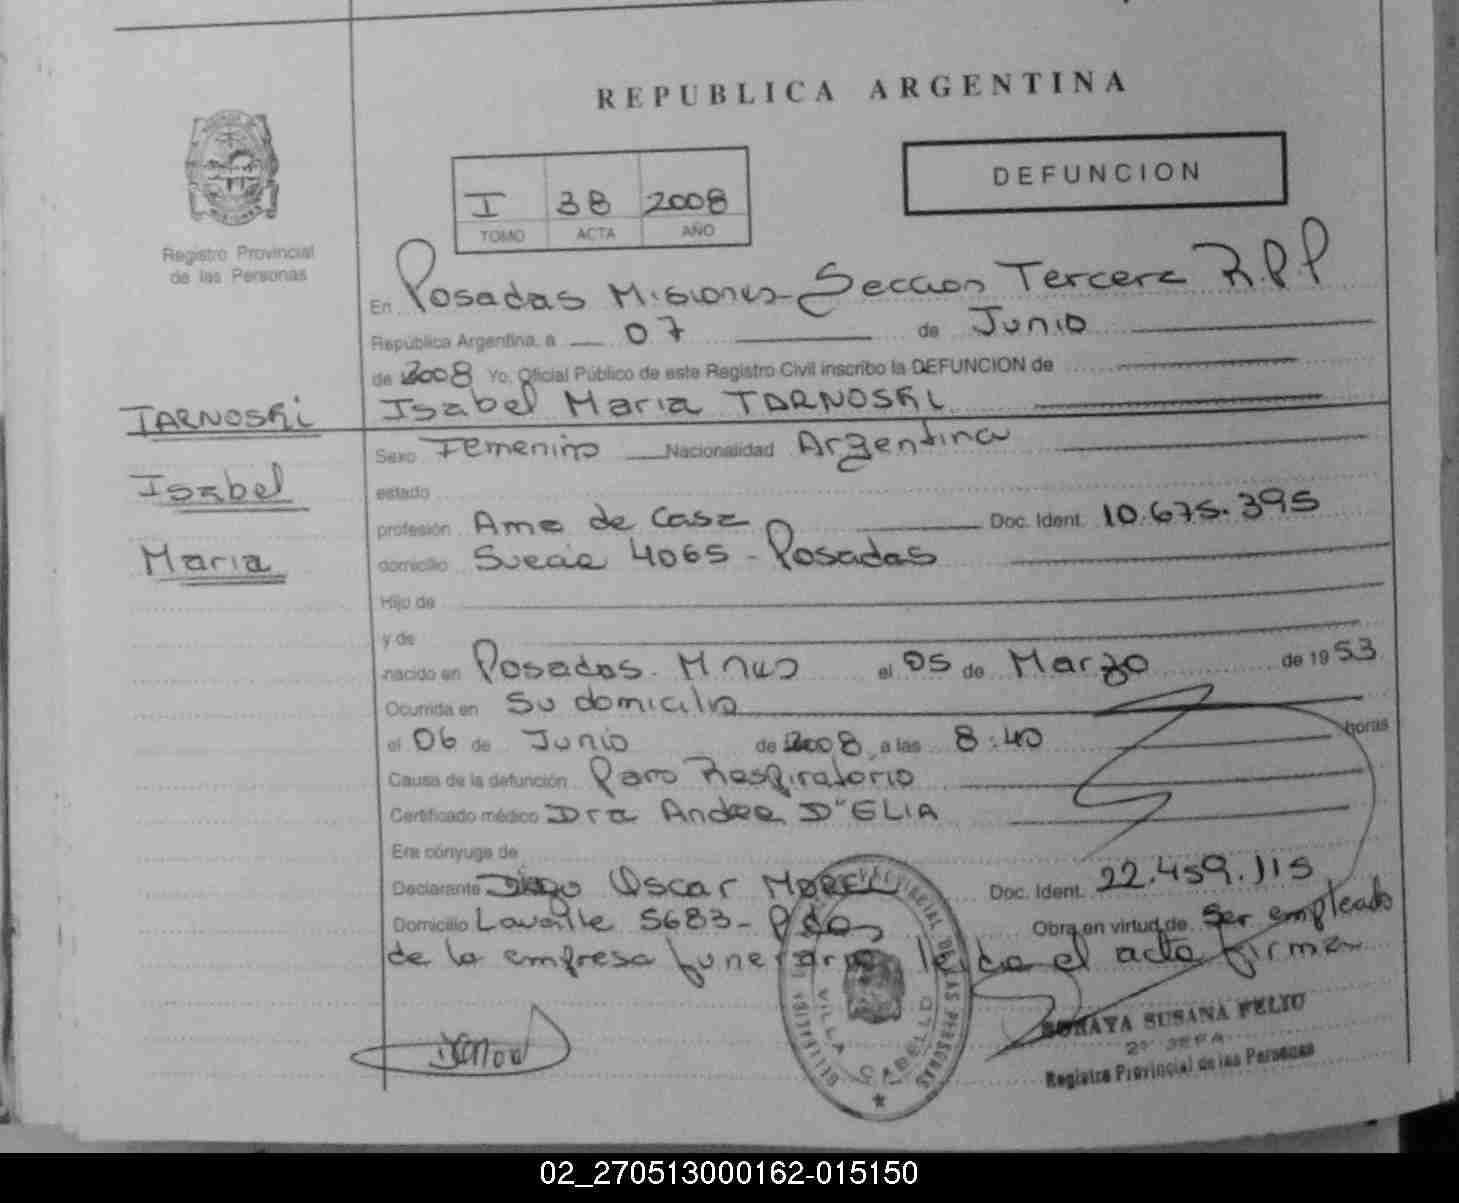 REPUBLICA ARGENTINA
DEFUNCION
I 38 2008
TOMO ACTA AÑO
Registro Provincial
de las Personas
En Posadas Misiones - Seccion Tercera R.P.P
República Argentina, a 07 de Junio
de 2008 Yo, Oficial Público de este Registro Civil inscribo la DEFUNCION de
Isabel Maria TARNOSKI
TARNOSKI
Isabel
Maria
Sexo Femenino Nacionalidad Argentina
estado
profesión Ama de Casa Doc. Ident. 10.675.395
domicilio Suecia 4065 - Posadas
Hijo de
y de
nacido en Posadas. Mnes el 05 de Marzo de 1953
Ocurrida en Su domicilio
el 06 de Junio de 2008, a las 8:40 horas
Causa de la defunción Paro Respiratorio
Certificado médico Dra Andrea D"ELIA
Era cónyuge de
Declarante Diego Oscar Doc. Ident. 22.459.115
Domicilio Lavalle 5683 - Pdas Obra en virtud de Ser empleado
de la empresa funeraria leida el acta firma
VILLA CABELLO
SORAYA SUSANA FELIU
2º JEFA
Registro Provincial de las Personas
02_270513000162-015150